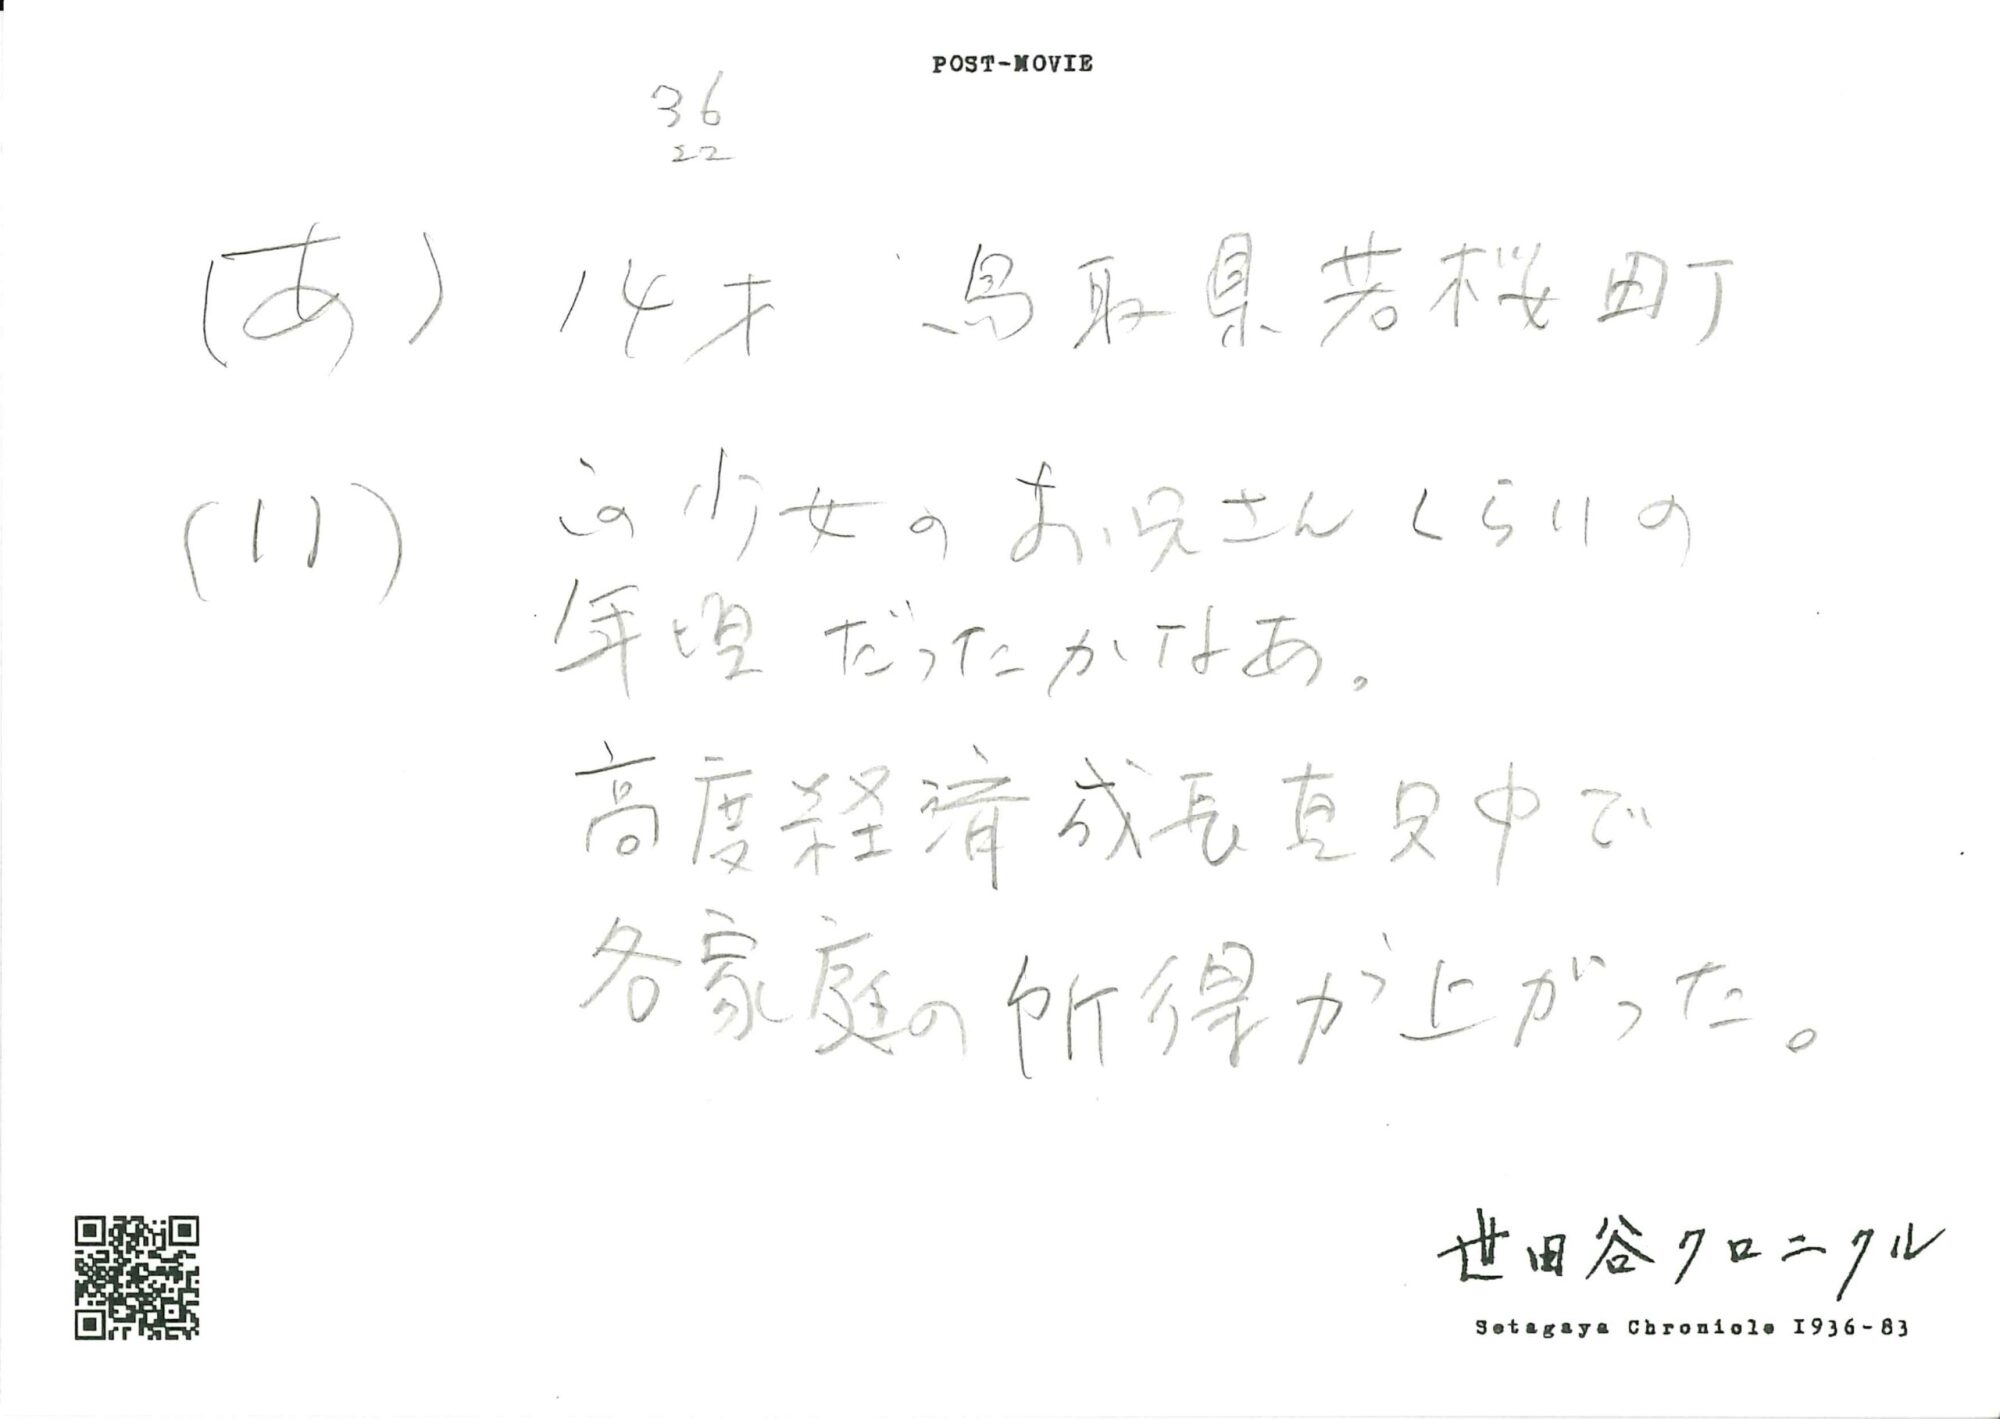 POST-MOVIE
36
22
(あ) 14才 鳥取県若桜町
(い) この少女のお兄さんくらいの
年頃だったかなあ。
高度経済成長真只中で
各家庭の所得が上がった。
世田谷クロニクル
Setagaya Chronicle 1936-83